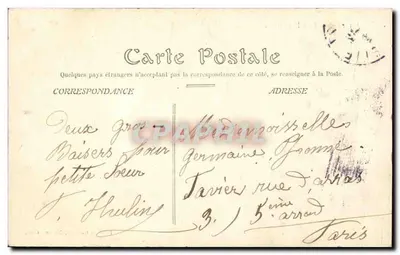 Carte Postale
Quelques pays étrangers n'acceptant pas la correspondance de ce côté, se renseigner à la Poste.
CORRESPONDANCE
ADRESSE
Deux gros
Baisers pour
petite Sœur
Mademoisselle
Germaine
rue d'arras
3 5ème arrond
Paris